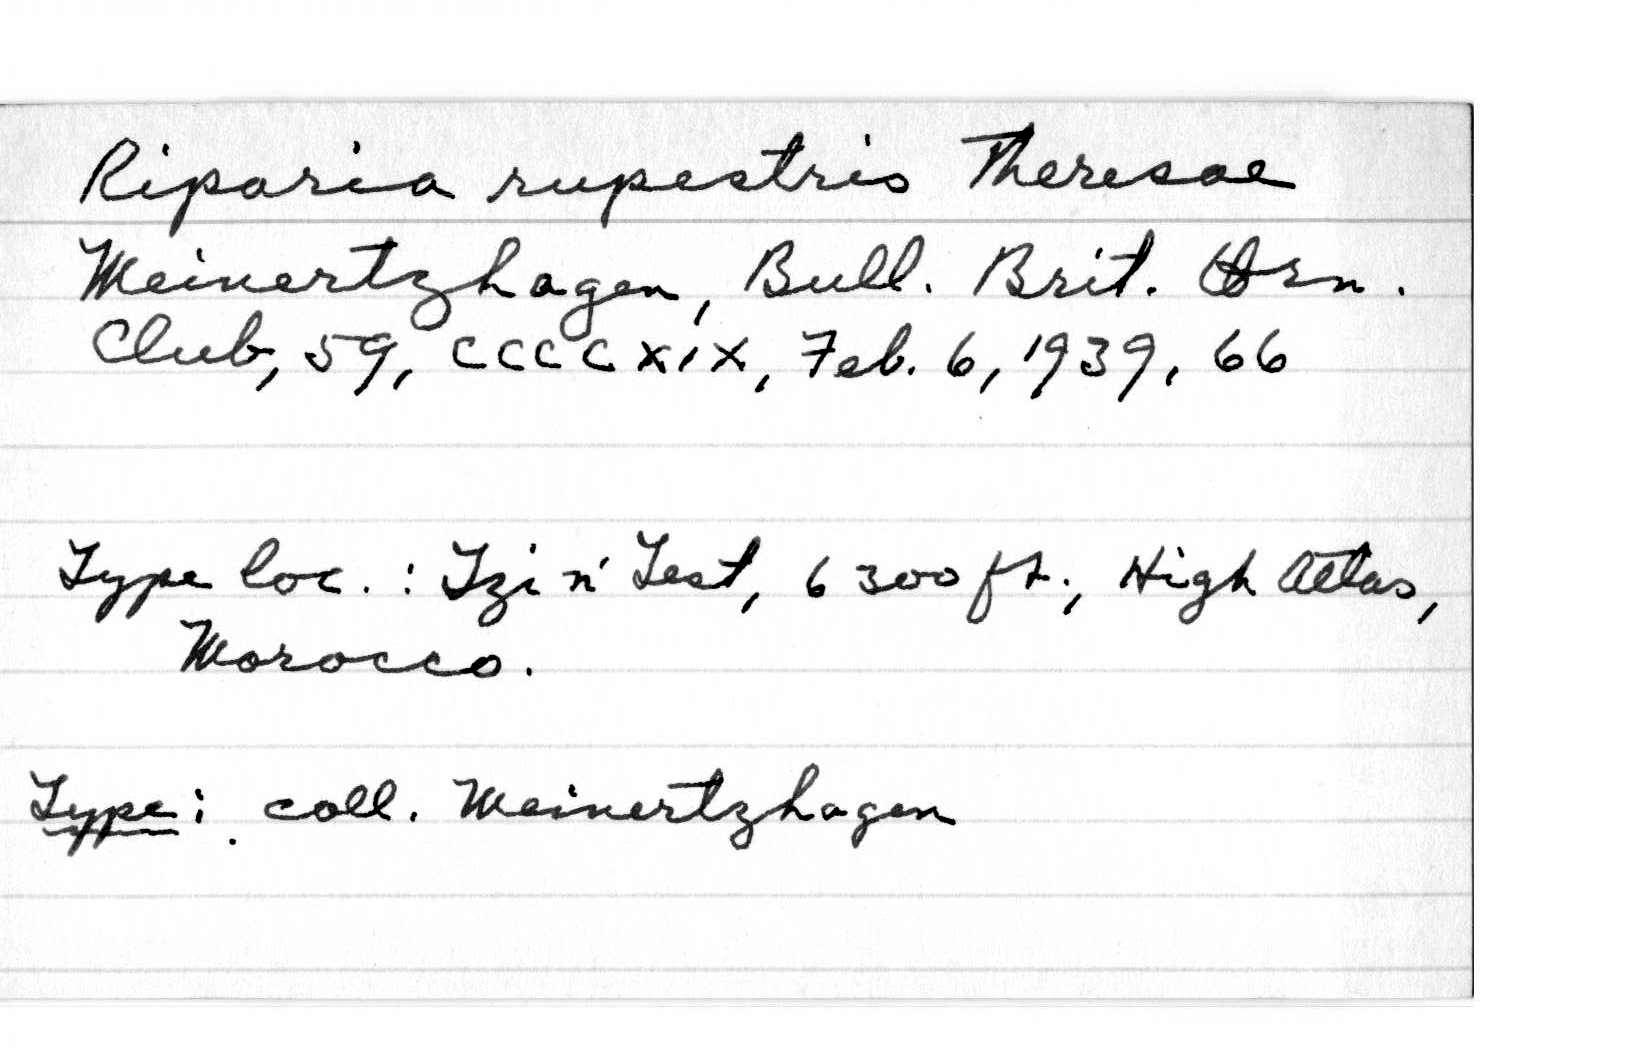 Riparia rupestris Theresae
Meinertzhagen, Bull. Brit. Orn.
Club, 59, CCCCXIX, Feb. 6, 1939, 66
Type loc.: Tzi n' Test, 6300 ft., High Atlas,
Morocco.
Type: coll. Meinertzhagen